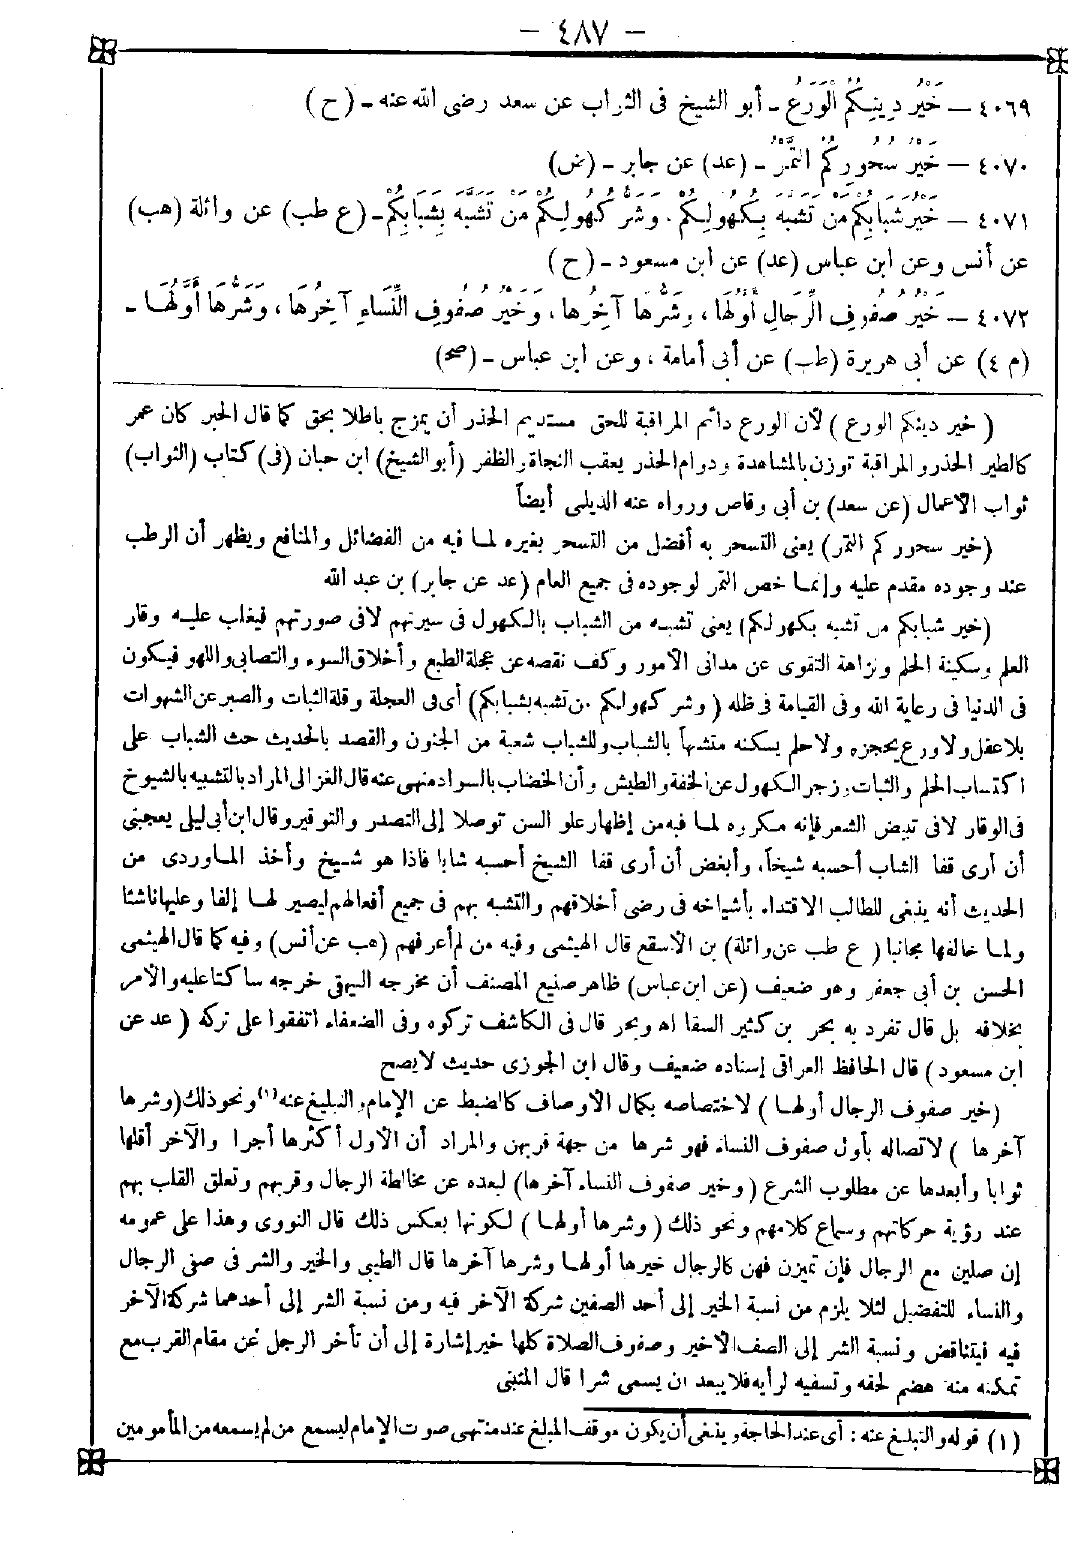 — ٤٨٧ —
٤٠٦٩ — خَيْرُ دِينِكُمُ الْوَرَعُ - أبو الشيخ فى الثراب عن سعد رضى الله عنه - (ح)
٤٠٧٠ — خَيْرُ سُحُورِكُمُ التَّمْرُ - (عد) عن جابر - (ض)
٤٠٧١ — خَيْرُ شَبَابِكُمْ مَنْ تَشَبَّهَ بِكُهُولِكُمْ، وَشَرُّ كُهُولِكُمْ مَنْ تَشَبَّهَ بِشَبَابِكُمْ - (ع طب) عن واثلة (هب)
عن أنس وعن ابن عباس (عد) عن ابن مسعود - (ح)
٤٠٧٢ — خَيْرُ صُفُوفِ الرِّجَالِ أَوَّلُهَا، وَشَرُّهَا آخِرُها، وَخَيْرُ صُفُوفِ النِّسَاءِ آخِرُهَا، وَشَرُّهَا أَوَّلُهَا -
(م ٤) عن أبى هريرة (طب) عن أبى أمامة، وعن ابن عباس - (صح)
(خير دينكم الورع) لأن الورع دائم المراقبة للحق مستديم الحذر أن يمزج باطلا بحق كما قال الحبر كان عمر
كالطير الحذر والمراقبة توزن بالمشاهدة ودوام الحذر يعقب النجاة والظفر (أبو الشيخ) ابن حبان (فى) كتاب (الثواب)
ثواب الاعمال (عن سعد) بن أبى وقاص ورواه عنه الديلمى أيضاً
(خير سحوركم التمر) يعنى التسحر به أفضل من التسحر بغيره لما فيه من الفضائل والمنافع ويظهر أن الرطب
عند وجوده مقدم عليه وإنما خص التمر لوجوده فى جميع العام (عد عن جابر) بن عبد الله
(خير شبابكم من تشبه بكهولكم) يعنى تشبه من الشباب بالكهول فى سيرتهم لا فى صورتهم فيغلب عليه وقار
العلم وسكينة الحلم ونزاهة التقوى عن مدانى الأمور وكف نفسه عن عجلة الطبع وأخلاق السوء والتصابى واللهو فيكون
فى الدنيا فى رعاية الله وفى القيامة فى ظله (وشر كهولكم من تشبه بشبابكم) أى فى العجلة وقلة الثبات والصبر عن الشهوات
بلا عقل ولا ورع يحجزه ولا حلم يسكنه متشبهاً بالشباب وللشباب شعبة من الجنون والقصد بالحديث حث الشباب على
اكتساب الحلم والثبات وزجر الكهول عن الخفة والطيش وأن الخضاب بالسواد منهى عنه قال الغزالى المراد بالتشبيه بالشيوخ
فى الوقار لا فى تبيض الشعر فإنه مكروه لما فيه من إظهار علو السن توصلا إلى التصدر والتوقير وقال ابن أبى ليلى يعجبنى
أن أرى قفا الشاب أحسبه شيخاً، وأبغض أن أرى قفا الشيخ أحسبه شابا فاذا هو شيخ وأخذ الماوردى من
الحديث أنه ينبغى للطالب الاقتداء بأشياخه فى رضى أخلاقهم والتشبه بهم فى جميع أفعالهم ليصير لها إلفا وعليها ناشئا
ولما خالفها مجانبا (ع طب عن واثلة) بن الأسقع قال الهيثمى وفيه من لم أعرفهم (هب عن أنس) وفيه كما قال الهيثمى
الحسن بن أبى جعفر وهو ضعيف (عن ابن عباس) ظاهر صنيع المصنف أن مخرجه البيهقى خرجه ساكتا عليه والأمر
بخلافه بل قال تفرد به بحر بن كثير السقا اه وبحر قال فى الكاشف تركوه وفى الضعفاء اتفقوا على تركه (عد عن
ابن مسعود) قال الحافظ العراقى إسناده ضعيف وقال ابن الجوزى حديث لا يصح
(خير صفوف الرجال أولها) لاختصاصه بكمال الأوصاف كالضبط عن الإمام والتبليغ عنه(١) ونحو ذلك (وشرها
آخرها) لاتصاله بأول صفوف النساء فهو شرها من جهة قربهن والمراد أن الأول أكثرها أجرا والآخر أقلها
ثوابا وأبعدها عن مطلوب الشرع (وخير صفوف النساء آخرها) لبعده عن مخالطة الرجال وقربهم وتعلق القلب بهم
عند رؤية حركاتهم وسماع كلامهم ونحو ذلك (وشرها أولها) لكونها بعكس ذلك قال النووى وهذا على عمومه
إن صلين مع الرجال فإن تميزن فهن كالرجال خيرها أولها وشرها آخرها قال الطيبى والخير والشر فى صفى الرجال
والنساء للتفضيل لئلا يلزم من نسبة الخير إلى أحد الصفين شركة الآخر فيه ومن نسبة الشر إلى أحدهما شركة الآخر
فيه فيتناقض ونسبة الشر إلى الصف الأخير وصفوف الصلاة كلها خير إشارة إلى أن تأخر الرجل عن مقام القرب مع
تمكنه منه هضم لحقه وتسفيه لرأيه فلا يبعد ان يسمى شرا قال المتنبى
(١) قوله والتبليغ عنه: أى عند الحاجة وينبغى أن يكون موقف المبلغ عند منتهى صوت الإمام ليسمع من لم يسمعه من المأمومين